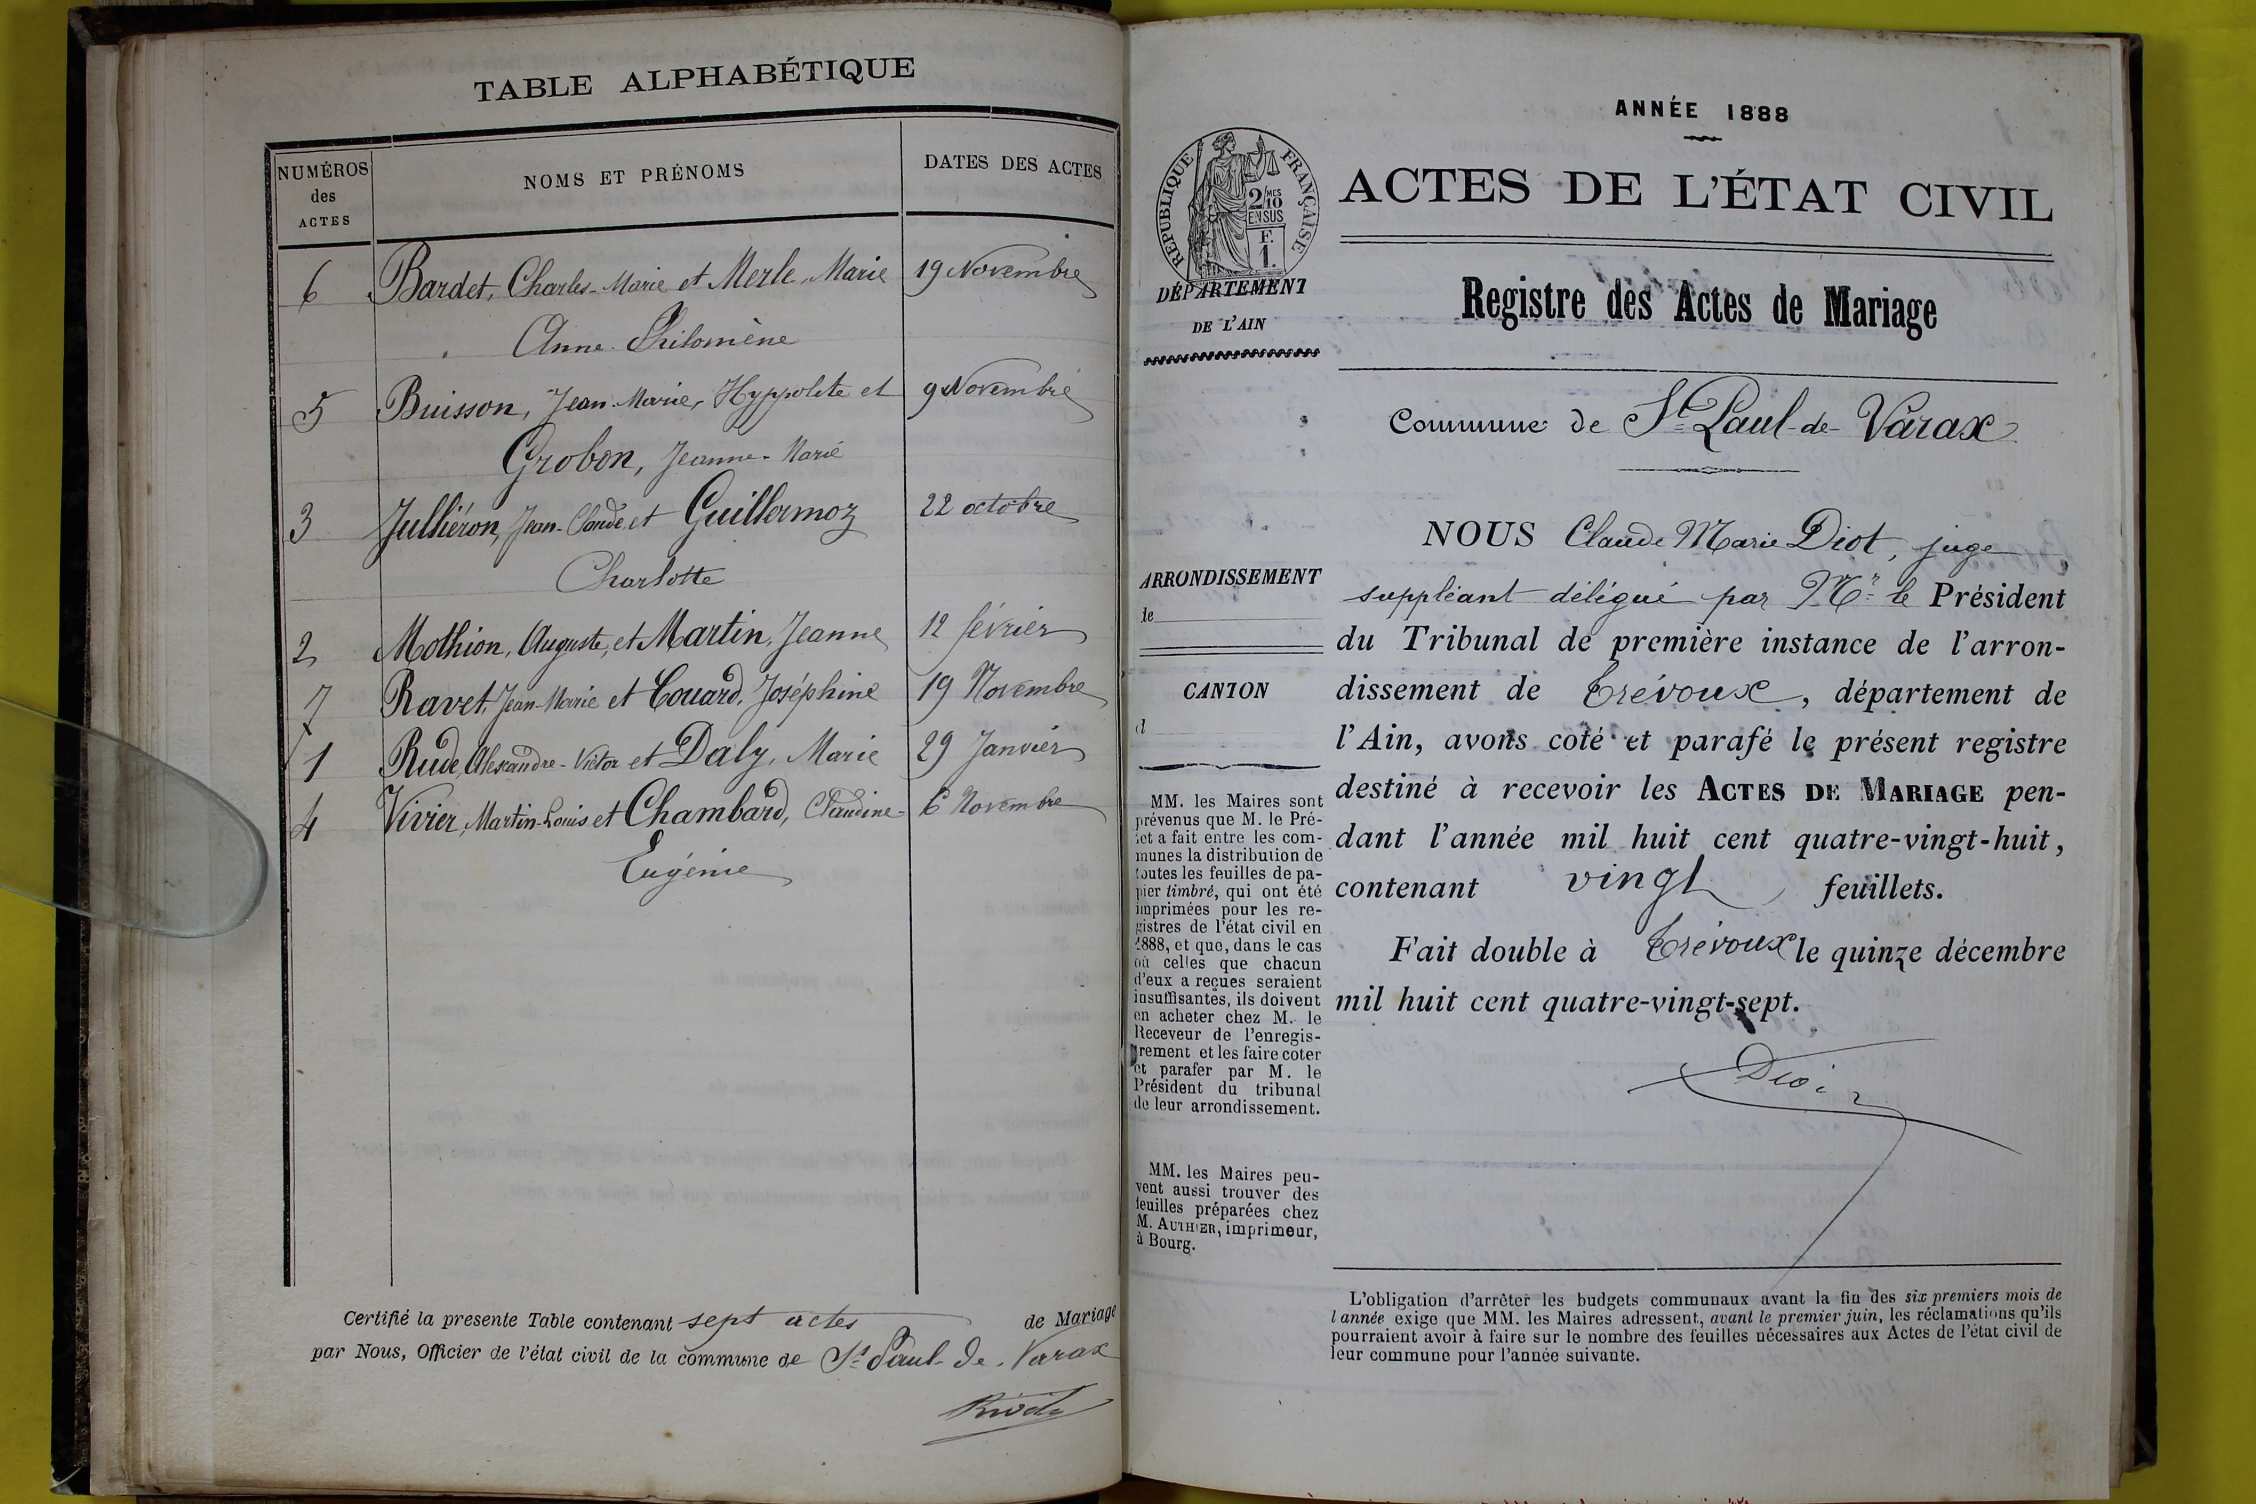 TABLE ALPHABÉTIQUE
NUMÉROS
des
ACTES
NOMS ET PRÉNOMS
DATES DES ACTES
6 Bardet, Charles-Marie et Merle, Marie 19 Novembre
Anne Philomène
5 Buisson, Jean-Marie, Hyppolite et 9 Novembre
Grobon, Jeanne-Marie
3 Julliéron, Jean-Claude et Guillermoz 22 octobre
Charlotte
2 Mothion, Auguste, et Martin, Jeanne 12 février
7 Ravet, Jean-Marie et Couard, Joséphine 19 Novembre
1 Rude, Alexandre-Victor et Daly, Marie 29 Janvier
4 Vivier, Martin-Louis et Chambard, Claudine- 6 Novembre
Eugénie
Certifié la presente Table contenant sept actes de Mariage
par Nous, Officier de l'état civil de la commune de St Paul-de-Varax
ANNÉE 1888
RÉPUBLIQUE FRANÇAISE
2/10MES
EN SUS
F.
1.
DÉPARTEMENT
DE L'AIN
ACTES DE L'ÉTAT CIVIL
Registre des Actes de Mariage
Commune de St Paul-de-Varax
ARRONDISSEMENT
de
CANTON
d
MM. les Maires sont
prévenus que M. le Pré-
fet a fait entre les com-
munes la distribution de
toutes les feuilles de pa-
pier timbré, qui ont été
imprimées pour les re-
gistres de l'état civil en
1888, et que, dans le cas
où celles que chacun
d'eux a reçues seraient
insuffisantes, ils doivent
en acheter chez M. le
Receveur de l'enregis-
trement et les faire coter
et parafer par M. le
Président du tribunal
de leur arrondissement.
MM. les Maires peu-
vent aussi trouver des
feuilles préparées chez
M. AUTHIER, imprimeur,
à Bourg.
NOUS Claude Marie Diot, juge
suppléant délégué par Mr le Président
du Tribunal de première instance de l'arron-
dissement de Trévoux, département de
l'Ain, avons coté et parafé le présent registre
destiné à recevoir les ACTES DE MARIAGE pen-
dant l'année mil huit cent quatre-vingt-huit,
contenant vingt feuillets.
Fait double à Trévoux le quinze décembre
mil huit cent quatre-vingt-sept.
Diot
L'obligation d'arrêter les budgets communaux avant la fin des six premiers mois de
l'année exige que MM. les Maires adressent, avant le premier juin, les réclamations qu'ils
pourraient avoir à faire sur le nombre des feuilles nécessaires aux Actes de l'état civil de
leur commune pour l'année suivante.